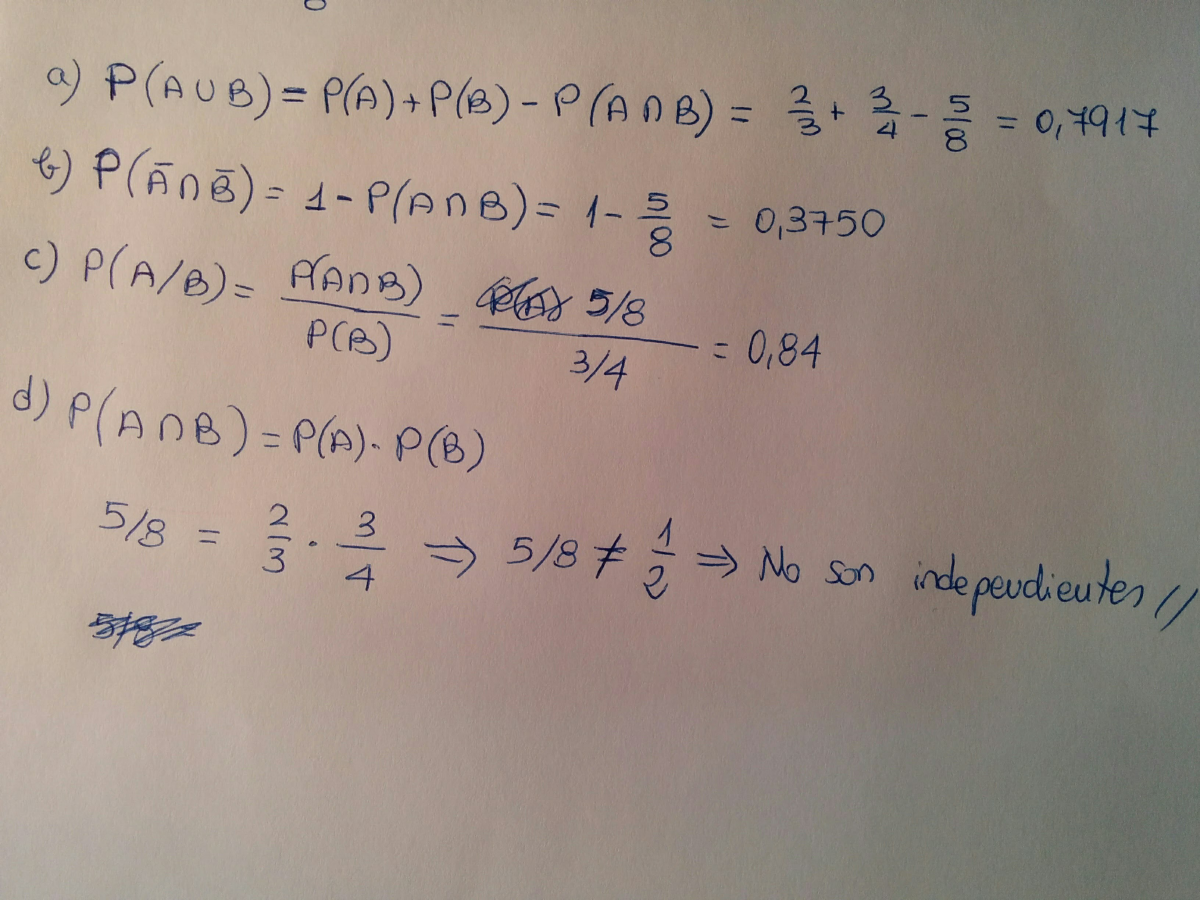 a) P(A∪B) = P(A) + P(B) - P(A∩B) = 2/3 + 3/4 - 5/8 = 0,7917
b) P(Ā∩B̄) = 1 - P(A∩B) = 1 - 5/8 = 0,3750
c) P(A/B) = P(A∩B)/P(B) = (5/8)/(3/4) = 0,84
d) P(A∩B) = P(A) · P(B)
5/8 = 2/3 · 3/4 ⇒ 5/8 ≠ 1/2 ⇒ No son independientes //